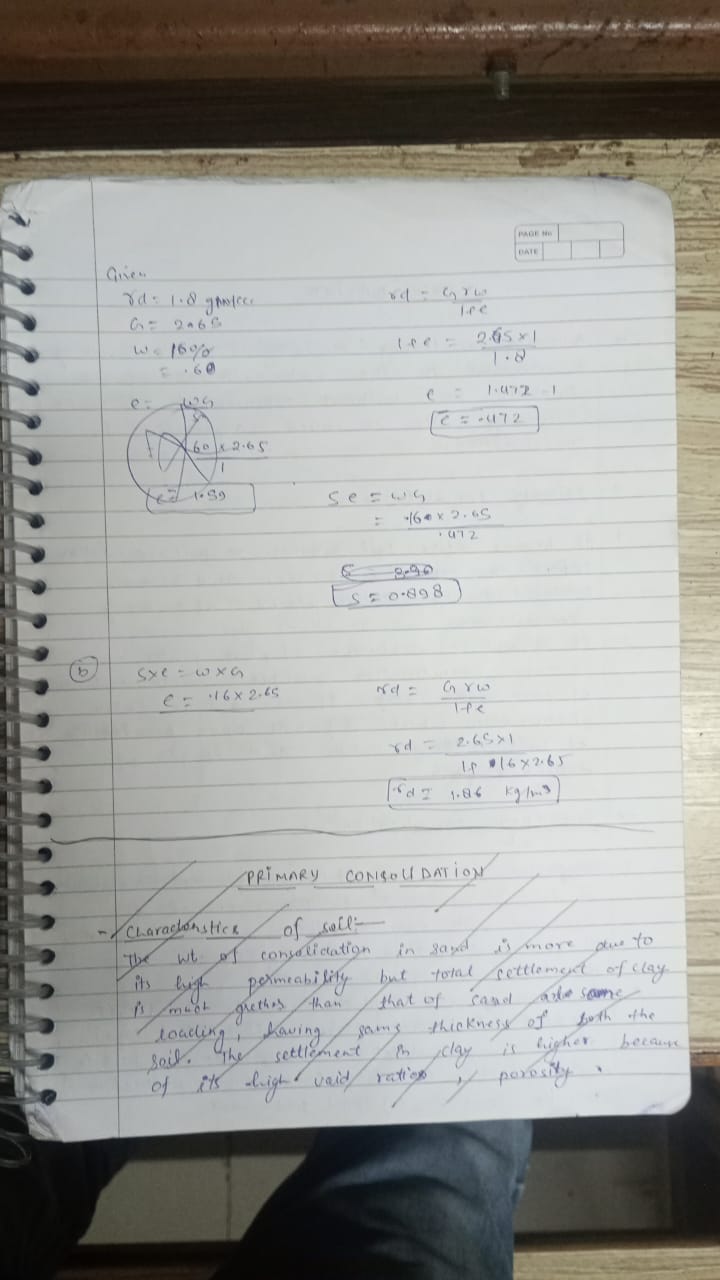 PAGE No
DATE
Given
γd = 1.8 gm/cc
G = 2.65
w = 16%
= .60
e = wG
60 × 2.65
1
e = 1.59
γd = Gγw
1+e
1+e = 2.65×1
1.8
e = 1.472 - 1
e = .472
Se = wG
= .16 × 2.65
.472
S = 0.898
(b)
S×e = w×G
e = .16 × 2.65
γd = Gγw
1+e
γd = 2.65×1
1+ .16×2.65
γd = 1.86 kg/m3
PRIMARY CONSOLIDATION
- Charactorstics of soil:-
The wt of consolidation in sand is more due to
its high permeability but total settlement of clay
is much grether than that of sand same
loading, having sams thickness of both the
soil. The settlement in clay is higher because
of its high void ratios, porosity.